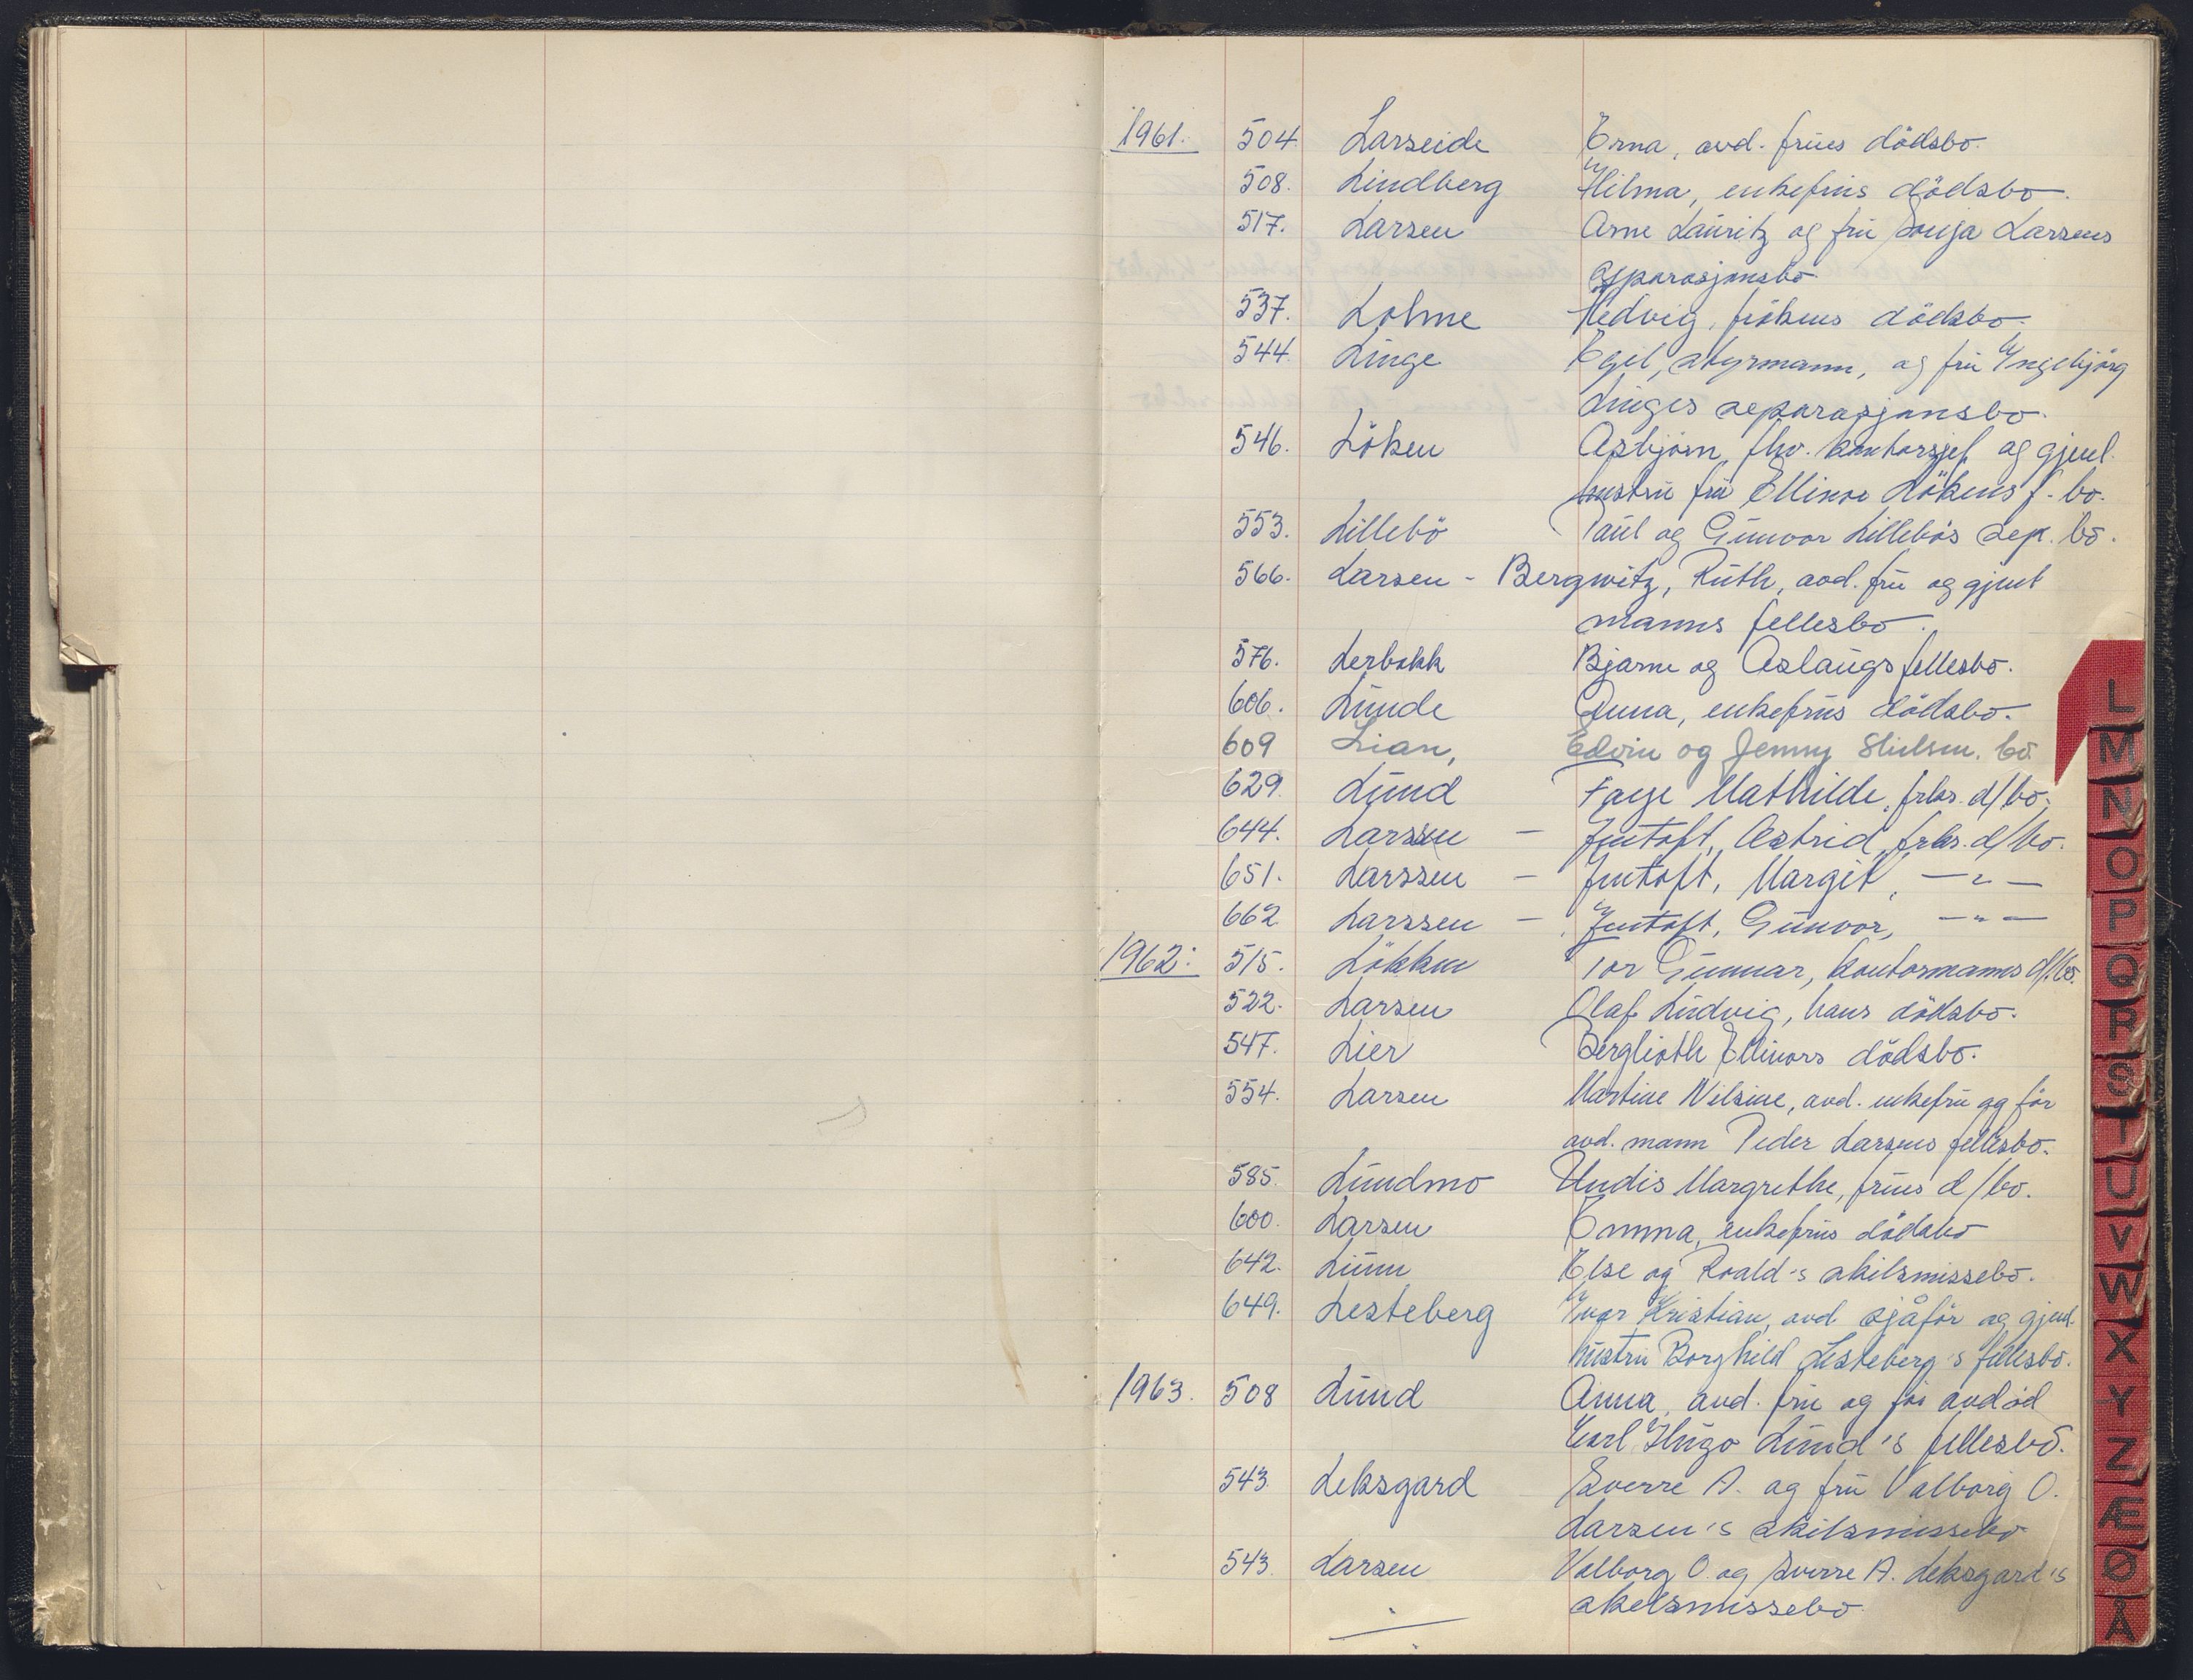 1961. 504 Larseide Erna, avd. frues dödsbo.
508. Lindberg Hilma, enkefrus dödsbo.
517. Larsen Arne Lauritz og fru Sonja Larsens
separasjonsbo
537. Lohme Hedvig, frökens dödsbo.
544. Linge Egil, styrmann, og fru Ingebjörg
Linges separasjonsbo.
546. Löken Asbjörn, fhv. kontorsjef og gjenl.
hustru fru Ellinor Lökens f. bo.
553. Lillebö Paul og Gunvor Lillebös sep. bo.
566. Larsen - Bergwitz, Ruth, avd. fru og gjenl
manns fellesbo.
576. Lerbakk Bjarne og Aslaugs fellesbo.
606. Lunde Anna, enkefrus dödsbo.
609 Lian, Edvin og Jenny Skilsm. bo.
629. Lund Faye Mathilde, frks. d/bo.
644. Larssen - Jentoft, Astrid, frks. d/bo.
651. Larssen - Jentoft, Margit, — " —
662 Larssen - Jentoft, Gunvor, — " —
1962: 515. Lökken Tor Gunnar, kontormanns d/bo.
522. Larsen Olaf Ludvig, hans dödsbo.
547. Lier Berglioth Ellinors dödsbo.
554. Larsen Martine Nilsine, avd. enkefru og för
avd. mann Peder Larsens fellesbo.
585. Lundmo Undis Margrethe, frues d/bo.
600. Larsen Emma, enkefrus dödsbo
642. Lunn Else og Roald's skilsmissebo.
649. Lesteberg Ivar Kristian, avd sjåför og gjenl.
hustru Borghild Lesteberg's fellesbo.
1963. 508 Lund Anna, avd. fru og för avdöd
Karl Hugo Lund's fellesbo.
543. Leksgard Sverre A. og fru Valborg O.
Larsen's skilsmissebo
543. Larsen Valborg O. og Sverre A. Leksgard's
skilsmissebo
L
M
N
O
P
Q
R
S
T
U
V
W
X
Y
Z
Æ
Ø
Å